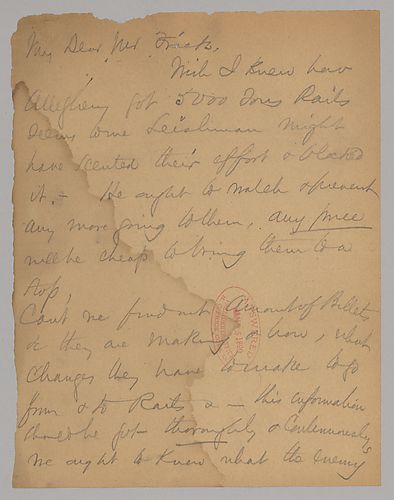 My Dear Mr Frick,
Wish I Knew how
Allegheny got 5000 Tons Rails
Seems to me Leishman might
have scented their effort & blocked
it. - He ought to watch & prevent
any more going to them, any price
will be cheap to bring them to a
stop,
Cant we find out Amount of Billets
&c they are making & how, what
changes they have to make to go
from & to Rails & - this information
should be got thoroughly & Continuously
we ought to Know what the Enemy
ANSWERED